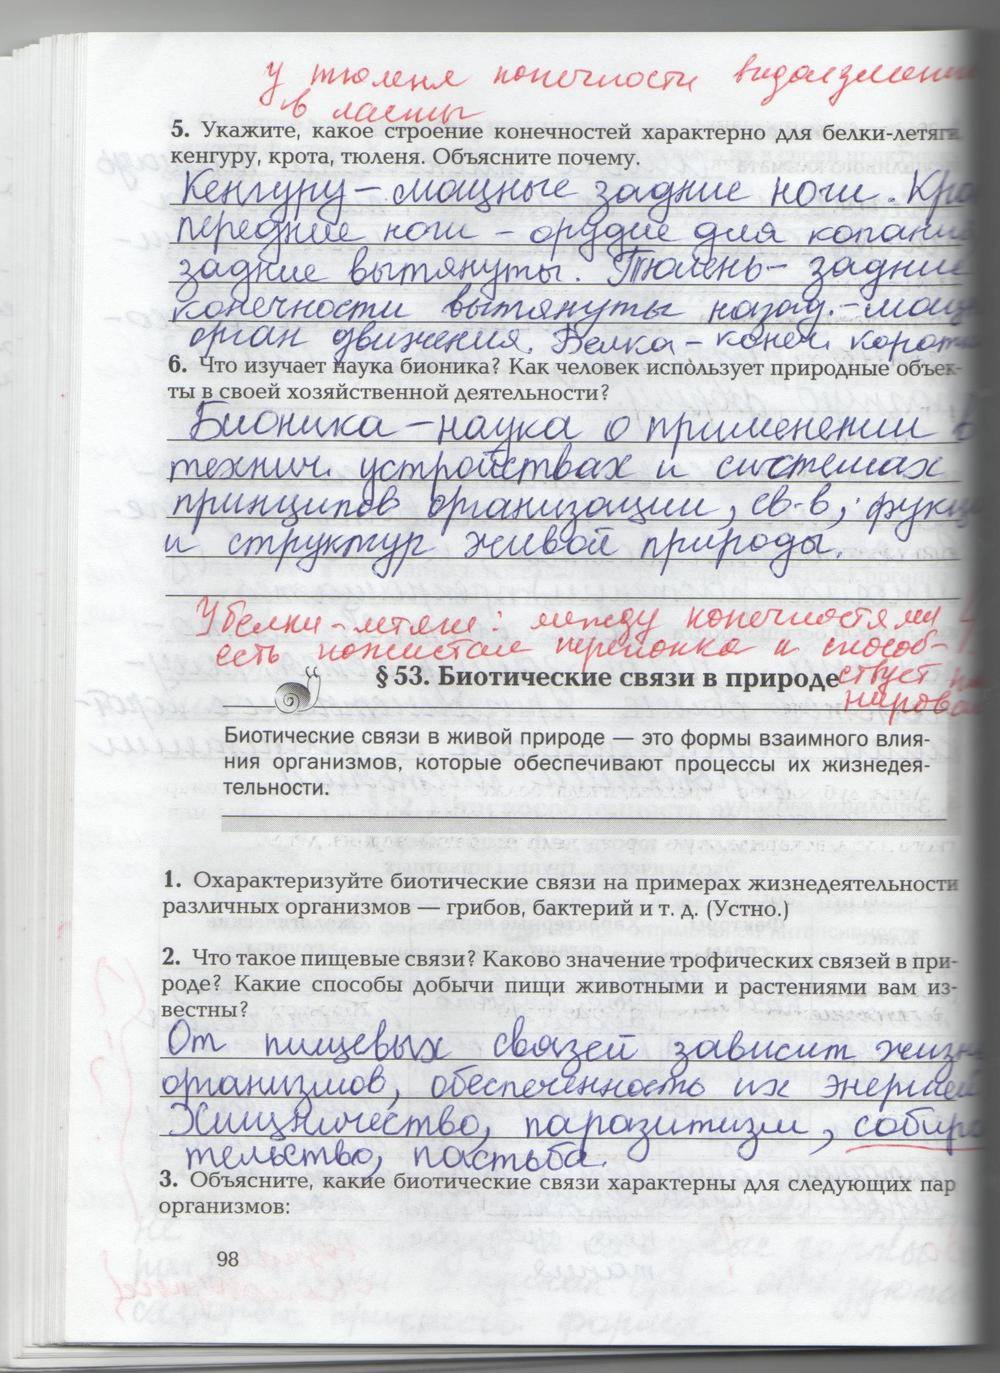 У тюленя конечности видоизмен
в ласты
5. Укажите, какое строение конечностей характерно для белки-летяги,
кенгуру, крота, тюленя. Объясните почему.
Кенгуру – мощные задние ноги. Кро
передние ноги – орудие для копания
задние вытянуты. Тюлень – задние
конечности вытянуты назад. – мощн
орган движения. Белка – конеч. коротк
6. Что изучает наука бионика? Как человек использует природные объек-
ты в своей хозяйственной деятельности?
Бионика – наука о применении в
технич. устройствах и системах
принципов организации, св-в, фукц
и структур живой природы.
У белки-летяги: между конечностями
есть кожистая перепонка и способ-
ствует
§ 53. Биотические связи в природе
Биотические связи в живой природе — это формы взаимного влия-
ния организмов, которые обеспечивают процессы их жизнедея-
тельности.
1. Охарактеризуйте биотические связи на примерах жизнедеятельности
различных организмов — грибов, бактерий и т. д. (Устно.)
2. Что такое пищевые связи? Каково значение трофических связей в при-
роде? Какие способы добычи пищи животными и растениями вам из-
вестны?
От пищевых связей зависит жизнь
организмов, обеспеченность их энергией
Хищничество, паразитизм, собира
тельство, пастьба.
3. Объясните, какие биотические связи характерны для следующих пар
организмов:
98